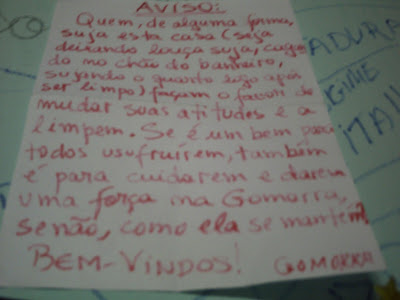 AVISO:
Quem, de alguma forma,
suja esta casa (seja
deixando louça suja, caga
do no chão do banheiro,
sujando o quarto logo após
ser limpo) façam o favor de
mudar suas atitudes e a
limpem. Se é um bem para
todos usufruírem, também
é para cuidarem e darem
uma força na Gomorra,
senão, como ela se mantém?
BEM-VINDOS! GOMORRA
ADURA
GIME
ITA